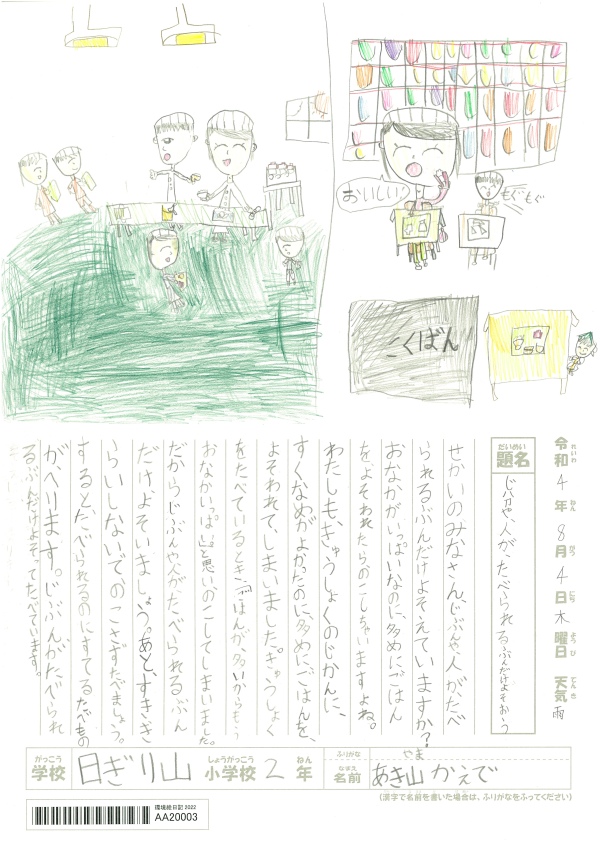 おいしい!
もぐもぐ
こくばん
令和4年8月4日木曜日 天気 雨
れいわ ねん がつ にち ようび てんき
だいめい
題名
じぶんや人が、たべられるぶんだけよそおう
せかいのみなさん、じぶんや、人が、たべ
られるぶんだけよそえていますか?
おなかがいっぱいなのに、多めにごはん
をよそわれたら、のこしちゃいますよね。
わたしも、きゅうしょくのじかんに、
すくなめがよかったのに、多めにごはんを、
よそわれて、しまいました。きゅうしょく
をたべているとき、ごはんが、多いからもう
おなかいっぱい。」と思いのこしてしまいました。
だからじぶんや人が、たべられるぶん
だけよそいましょう。あと、すきき
らいしないで、のこさずたべましょう。
するとたべられるのにすてるたべもの
が、へります。じぶんがたべられ
るぶんだけよそってたべています。
がっこう
学校
日ぎり山
しょうがっこう
小学校
2
ねん
年
ふりがな
やま
なまえ
名前
あき山 かえで
(漢字で名前を書いた場合は、ふりがなをふってください)
環境絵日記 2022
AA20003